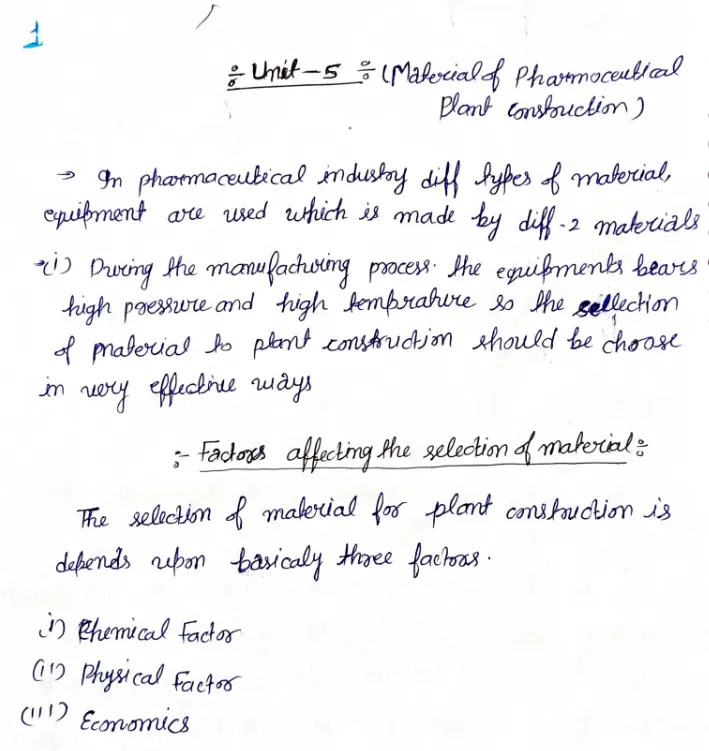 1
÷ Unit - 5 ÷ (Material of Pharmoceutical
Plant Construction)
→ In pharmaceutical industry diff types of material,
equipment are used which is made by diff-2 materials
→(i) During the manufacturing process. the equipments bears
high pressure and high temprature so the sellection
of material to plant construction should be choose
in very effective ways
:- Factors affecting the selection of material ÷
The selection of material for plant construction is
depends upon basicaly three factors.
(i) Chemical Factor
(ii) Physical Factor
(iii) Economics